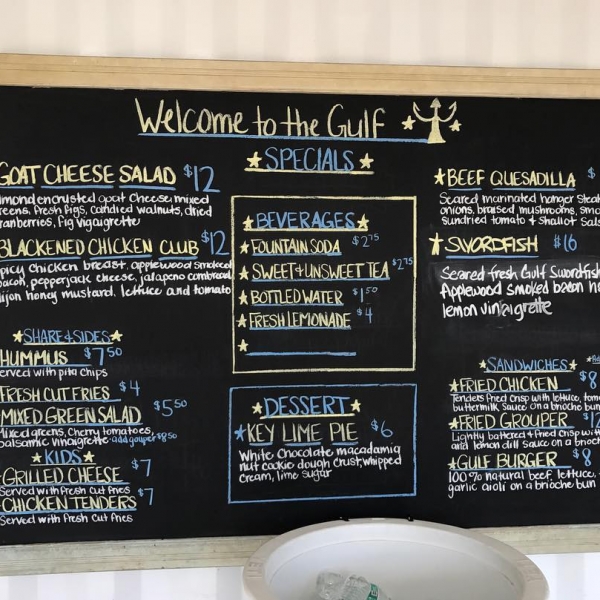 Welcome to the Gulf
SPECIALS
GOAT CHEESE SALAD $12
almond encrusted goat cheese, mixed
greens, fresh figs, candied walnuts, dried
cranberries, fig vigaigrette
BLACKENED CHICKEN CLUB $12
spicy chicken breast, applewood smoked
bacon, pepperjack cheese, jalapeno cornbread,
dijon honey mustard, lettuce and tomato
SHARE & SIDES
HUMMUS $7.50
served with pita chips
FRESH CUT FRIES $4
MIXED GREEN SALAD $5.50
Mixed greens, Cherry tomatoes,
balsamic vinaigrette - add grouper $8.50
KIDS
GRILLED CHEESE $7
Served with Fresh Cut Fries
CHICKEN TENDERS $7
Served with Fresh Cut Fries
BEVERAGES
FOUNTAIN SODA $2.75
SWEET & UNSWEET TEA $2.75
BOTTLED WATER $1.50
FRESH LEMONADE $4
DESSERT
KEY LIME PIE $6
White Chocolate macadamia
nut cookie dough crust, whipped
cream, lime sugar
BEEF QUESADILLA $
Seared marinated hanger steak
onions, braised mushrooms,
sundried tomato & shallot
SWORDFISH $16
Seared fresh Gulf Swordfish
Applewood smoked bacon
lemon vinaigrette
SANDWICHES
FRIED CHICKEN $8
Tenders fried crisp with lettuce,
buttermilk sauce on a brioche bun
FRIED GROUPER $12
Lightly battered & fried crisp with
and lemon dill sauce on a
GULF BURGER $8
100% natural beef, lettuce,
garlic aioli on a brioche bun